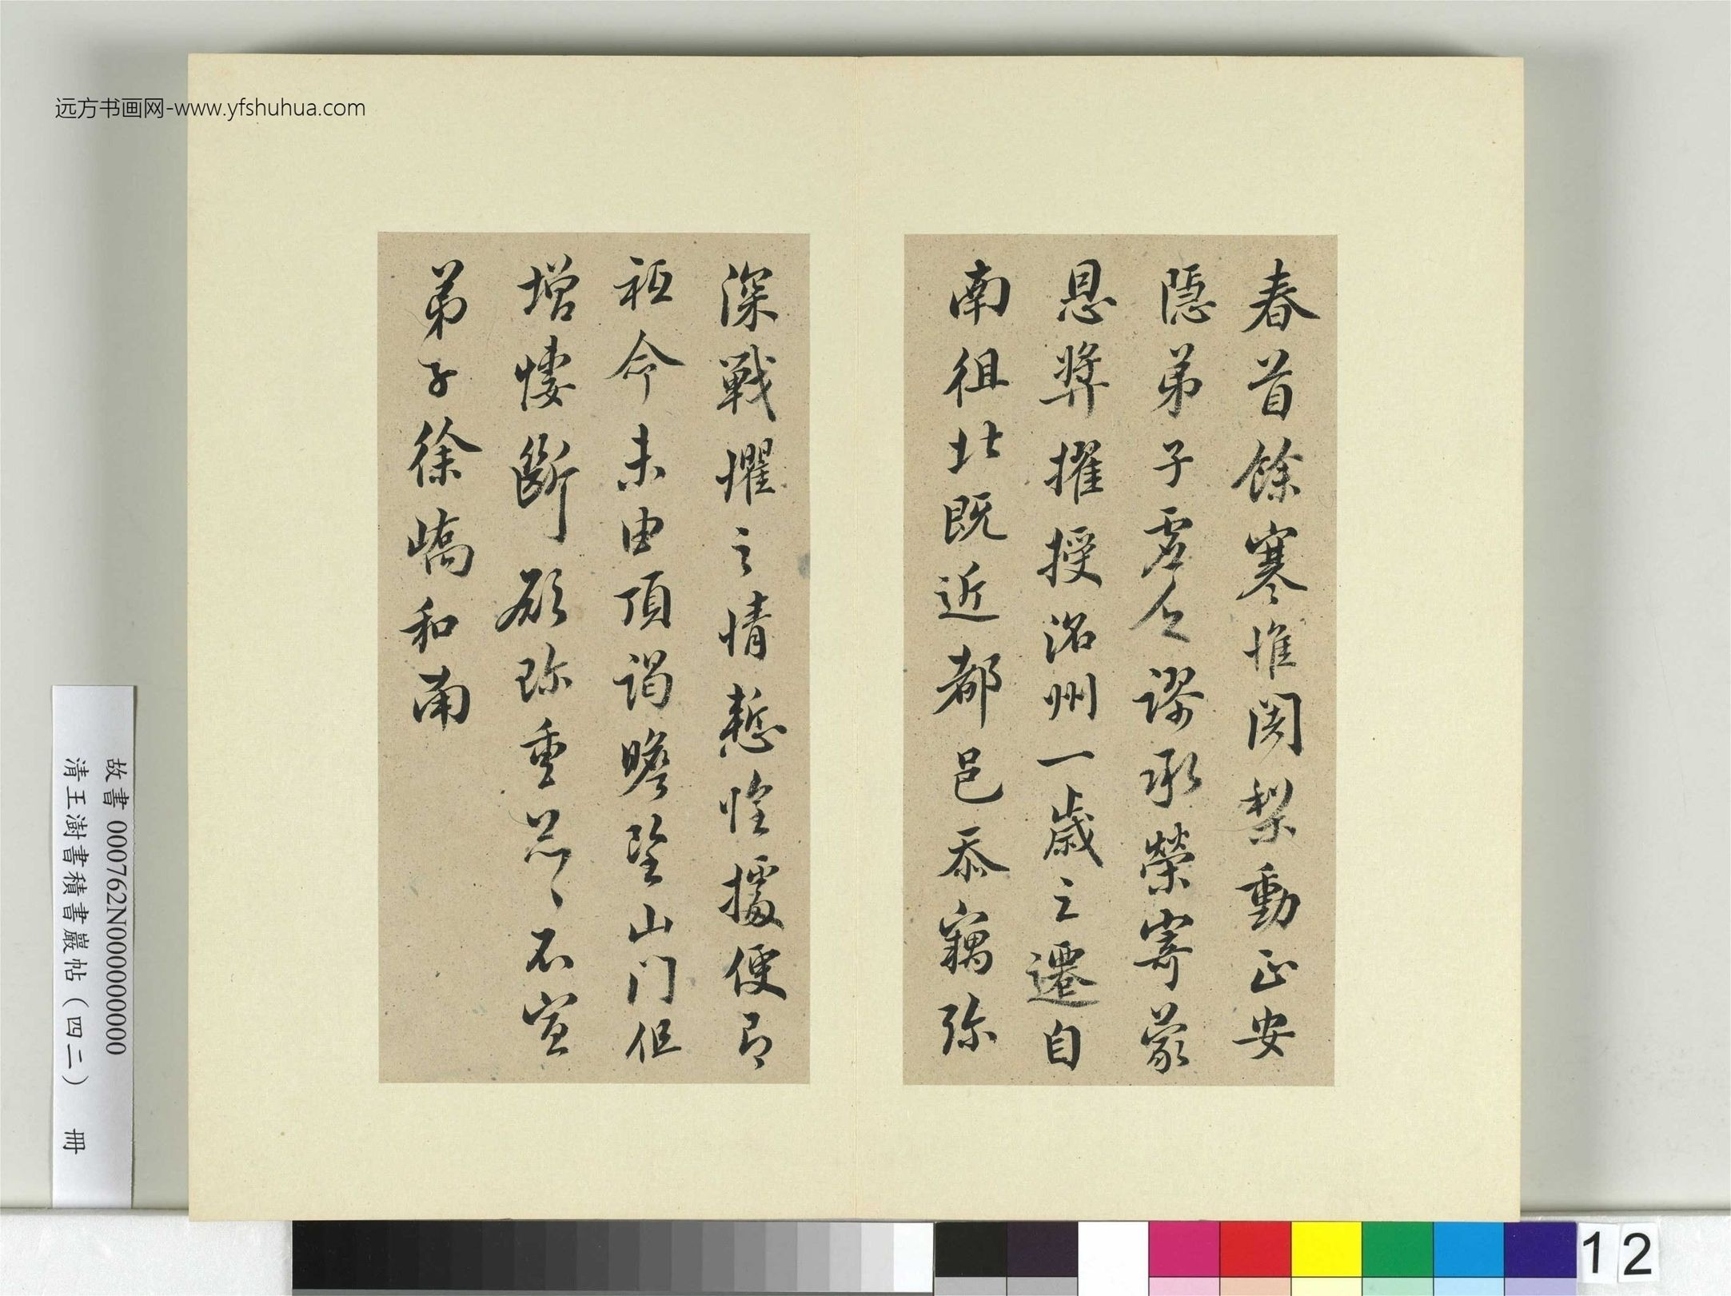 远方书画网-www.yfshuhua.com
春首餘寒惟闍梨動止安
隱弟子虛乏謬承榮寄蒙
恩獎擢授洺州一歲之遷自
南徂北既近都邑忝竊弥
深戰懼之情慙惶據便即
祗命未由頂謁瞻望山門但
增悽斷願珎重怱〻不宣
弟子徐嶠和南
故書 000762N000000000
清王澍書積書巖帖(四二) 冊
12